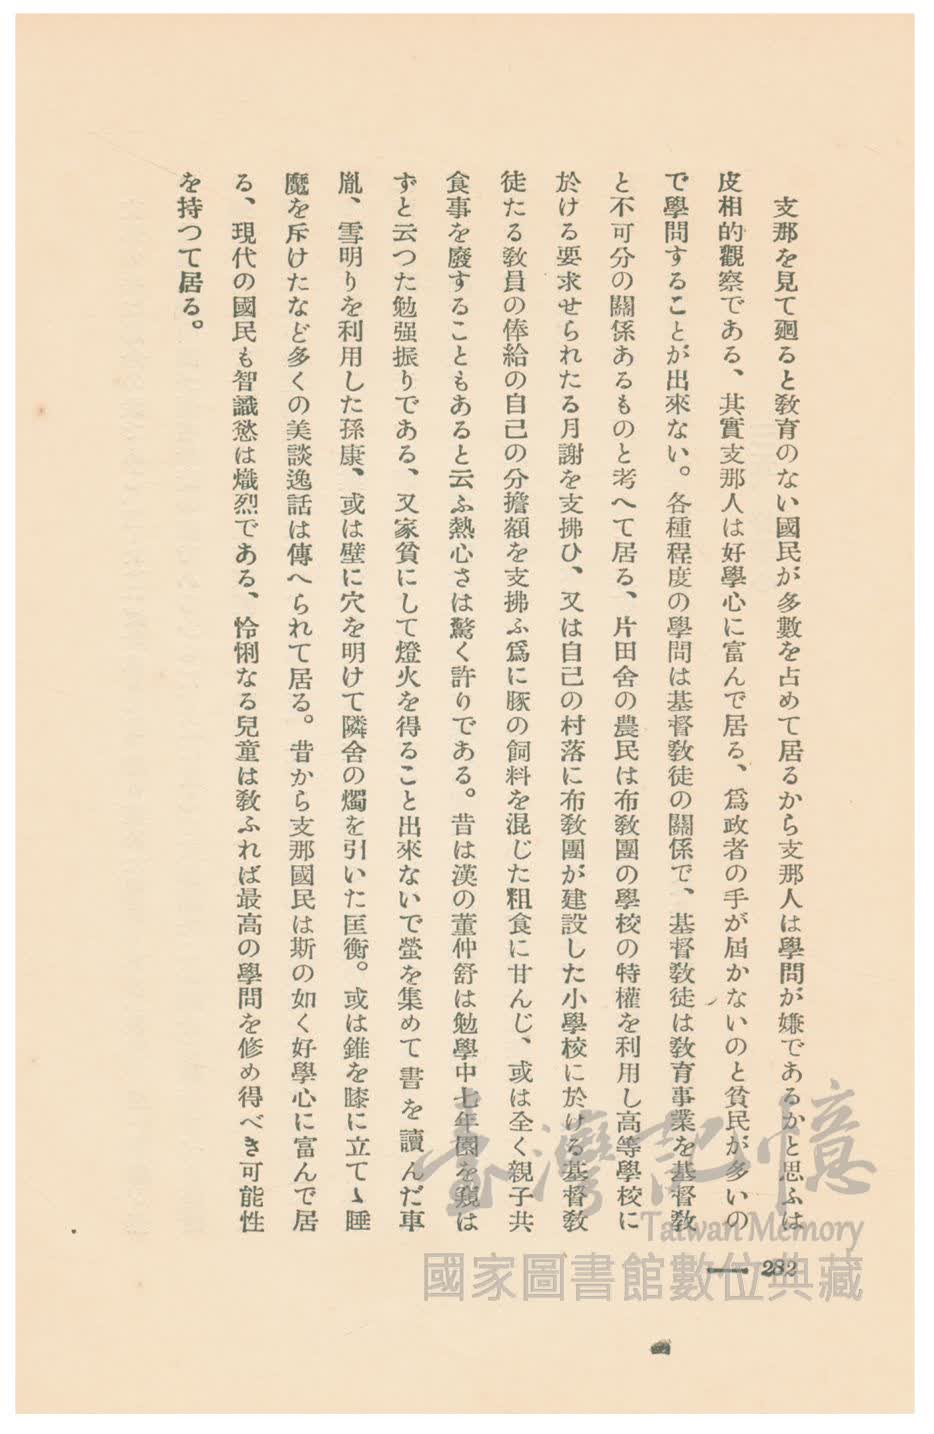 支那を見て廻ると教育のない國民が多數を占めて居るから支那人は學問が嫌であるかと思ふは
皮相的觀察である、其實支那人は好學心に富んで居る、爲政者の手が屆かないのと貧民が多いの
で學問することが出來ない。各種程度の學問は基督教徒の關係で、基督教徒は教育事業を基督教
と不可分の關係あるものと考へて居る、片田舍の農民は布教團の學校の特權を利用し高等學校に
於ける要求せられたる月謝を支拂ひ、又は自己の村落に布教團が建設した小學校に於ける基督教
徒たる教員の俸給の自己の分擔額を支拂ふ爲に豚の飼料を混じた粗食に甘んじ、或は全く親子共
食事を廢することもあると云ふ熱心さは驚く許りである。昔は漢の董仲舒は勉學中七年園を窺は
ずと云つた勉强振りである、又家貧にして燈火を得ること出來ないで螢を集めて書を讀んだ車
胤、雪明りを利用した孫康、或は壁に穴を明けて隣舍の燭を引いた匡衡。或は錐を膝に立てゝ睡
魔を斥けたなど多くの美談逸話は傳へられて居る。昔から支那國民は斯の如く好學心に富んで居
る、現代の國民も智識慾は熾烈である、怜悧なる兒童は教ふれば最高の學問を修め得べき可能性
を持つて居る。
臺灣記憶
Taiwan Memory
國家圖書館數位典藏
282